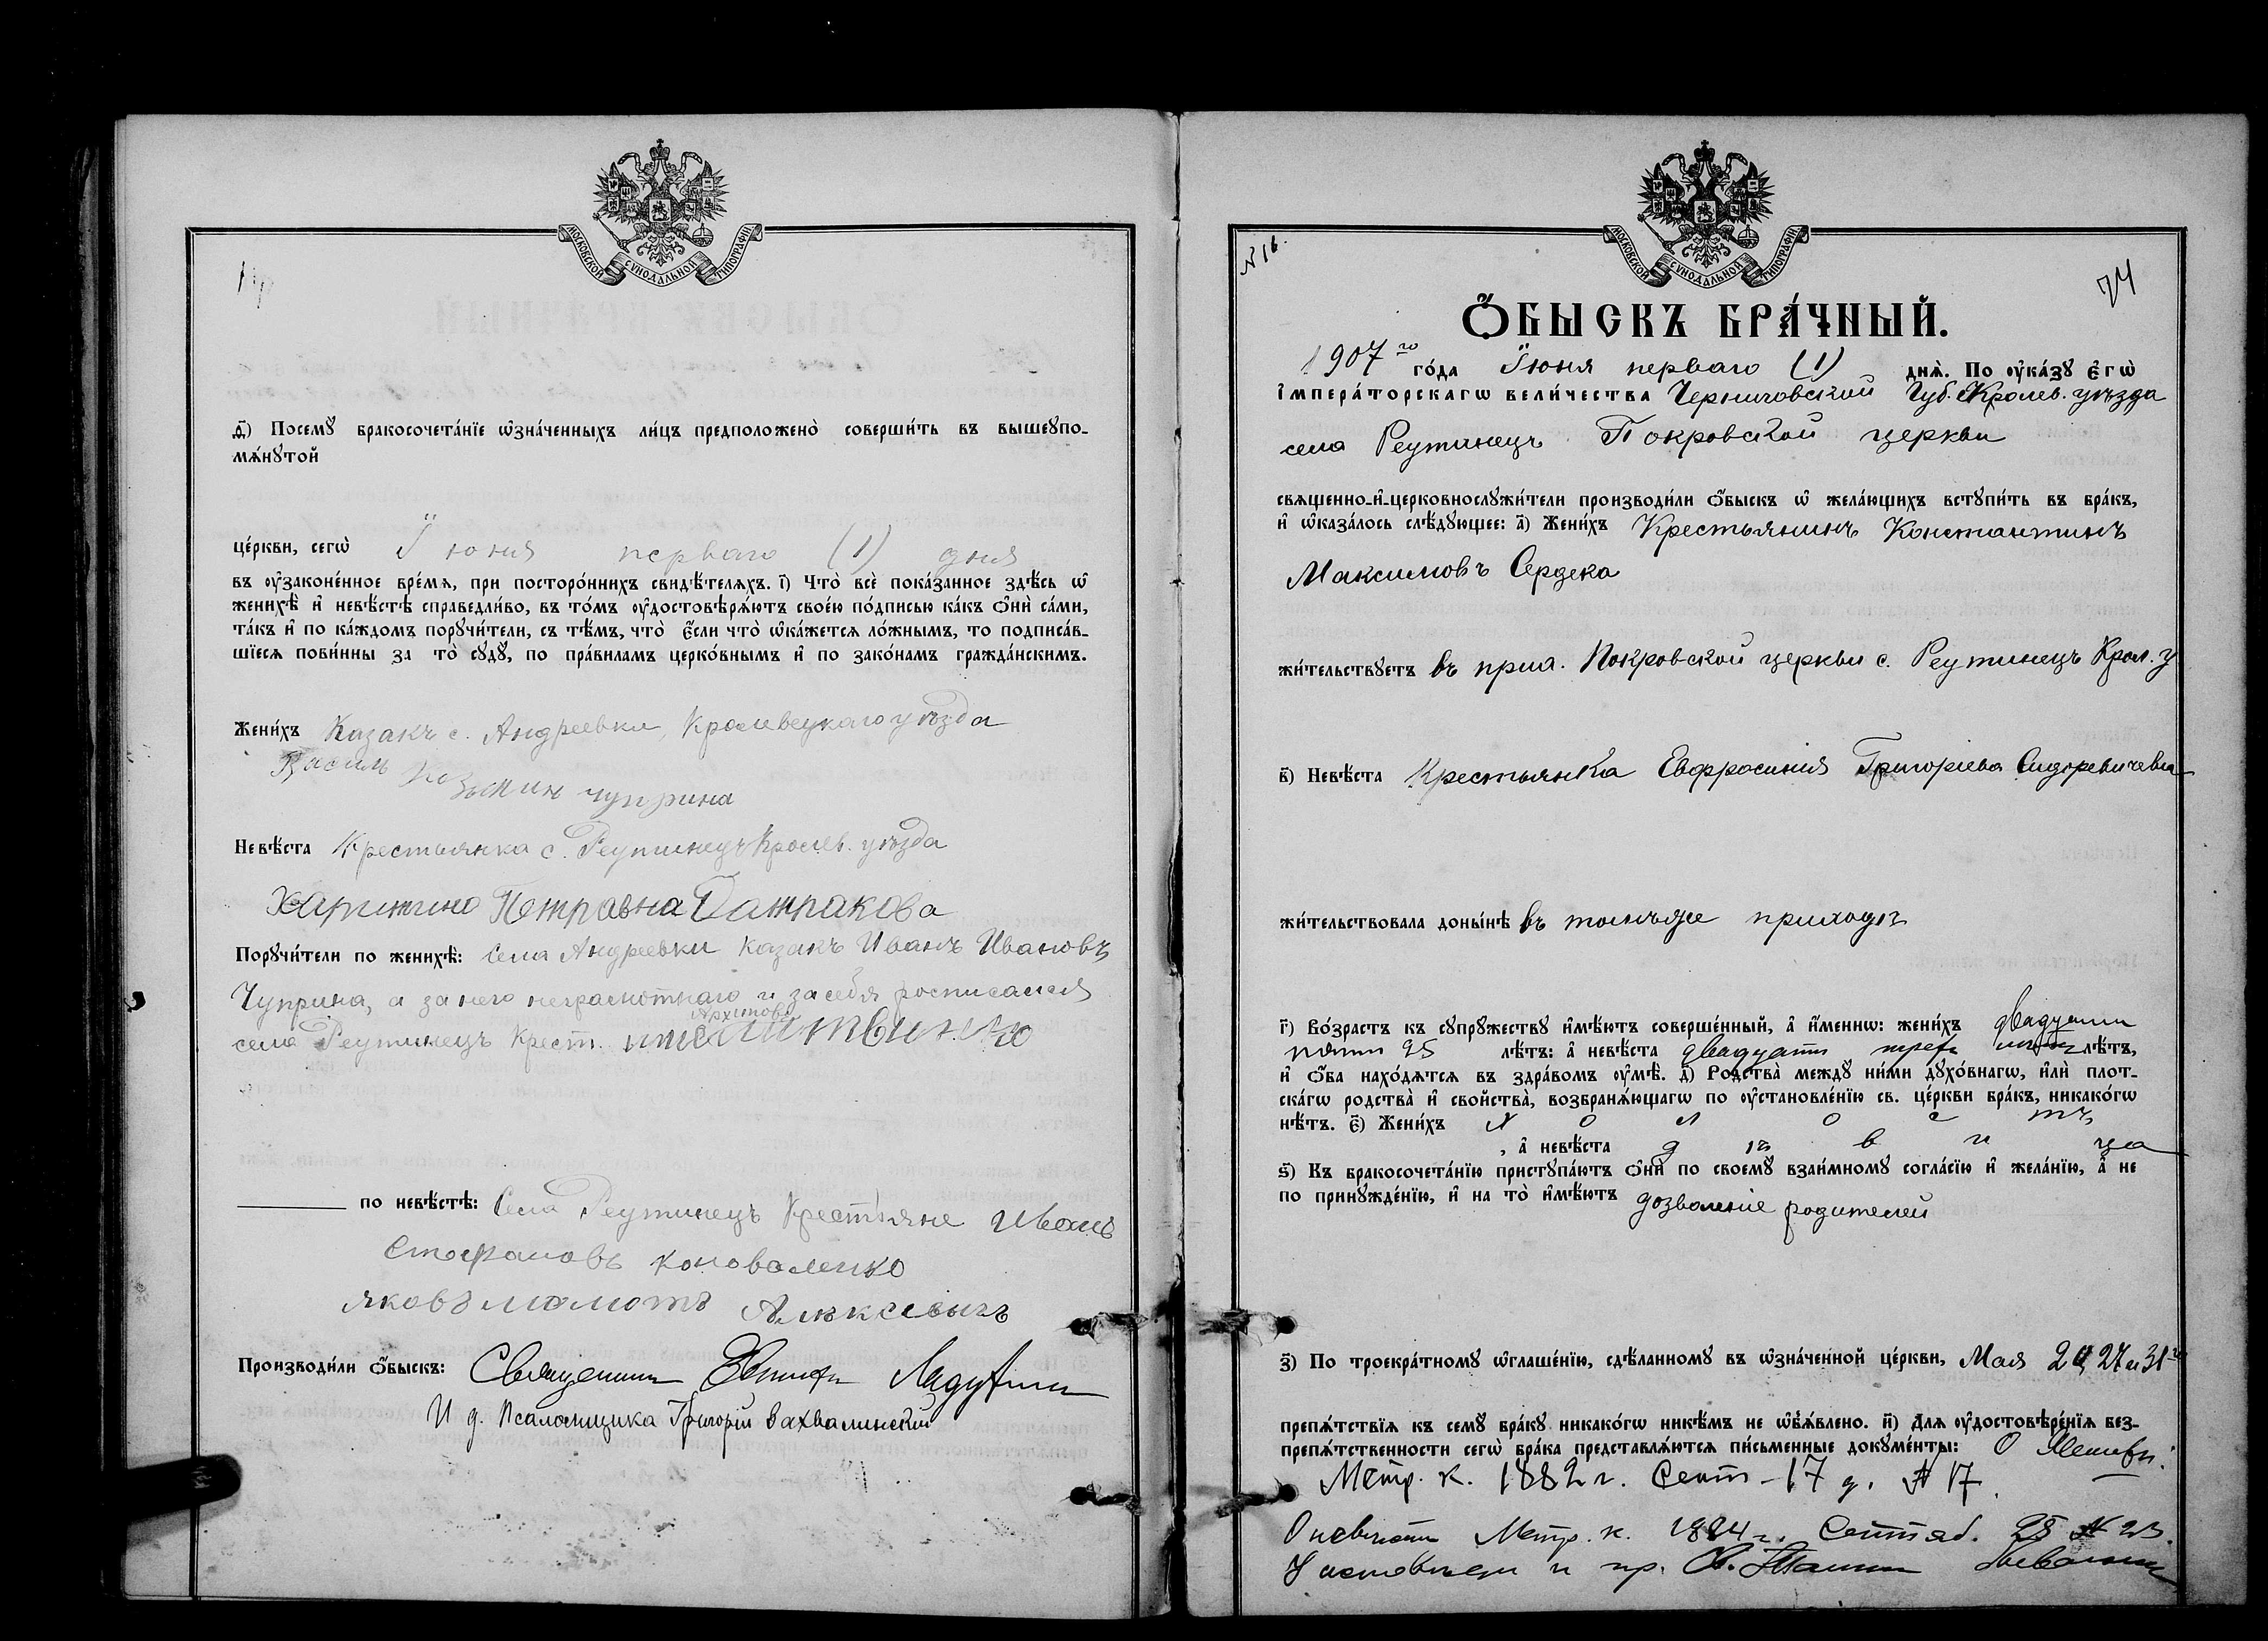 МОСКОВСКОЙ СУНОДАЛЬНОЙ ТИПОГРАФІИ
д҃) Посемꙋ бракосочета́нїе ѡ҆зна́ченныхъ ли́цъ предположено̀ соверши́ть въ вышеꙋпо-
мѧ́нꙋтой
це́ркви, сегѡ̀ Іюня перваго (1) дня
въ ᲂу҆законе́нное вре́мѧ, при посторо́ннихъ свидѣ́телѧхъ. і҃) Что̀ всѐ пока́занное здѣ́сь ѡ҆
женихѣ̀ и҆ невѣ́стѣ справедли́во, въ то́мъ ᲂу҆достовѣрѧ́ютъ свое́ю по́дписью ка́къ ѻ҆нѝ са́ми,
та́къ и҆ по ка́ждомъ порꙋчи́тели, съ тѣ́мъ, что̀ є҆́сли что̀ ѡ҆ка́жетсѧ ло́жнымъ, то подписа́в-
шїесѧ пови́нны за то̀ сꙋдꙋ̀, по пра́виламъ церко́внымъ и҆ по зако́намъ гражда́нскимъ.
Жени́хъ Казакъ с. Андреевки, Кролевецкаго уѣзда
Василь Козьмин чуприна
Невѣ́ста Крестьянка с. Реутинецъ Кролев. уѣзда
Харитина Петравна
Порꙋчи́тели по женихѣ̀: Села Андреевки казакъ Иванъ Ивановъ
Чуприна, а за него неграмотнаго и за себя росписался
села Реутинецъ Крест.
по невѣ́стѣ: Села Реутинецъ Крестьяне Иванъ
Стефановъ Коноваленко
Яковъ
Производи́ли ѻ҆́быскъ: Священник
И д. Псаломщика Григорій Вахвалинский
МОСКОВСКОЙ СУНОДАЛЬНОЙ ТИПОГРАФІИ
№ 16.
74
Ѻ҆́БЫСКЪ БРА́ЧНЫЙ.
1907 го го́да Іюня перваго (1) днѧ̀. По ᲂу҆ка́зꙋ є҆гѡ̀
і҆мпера́торскагѡ вели́чества Черниговской Губ. Кролев. уѣзда
села Реутинецъ Покровской церкви
свѧщенно-и҆-церковнослꙋжи́тели производи́ли ѻ҆́быскъ ѡ҆ жела́ющихъ встꙋпи́ть въ бра́къ,
и҆ ѡ҆каза́лось слѣ́дꙋющее: а҃) Жени́хъ Крестьянинъ Константинъ
Максимовъ Сердека
жи́тельствꙋетъ въ прих. Покровской церкви с. Реутинецъ Крол. у
в҃) Невѣ́ста Крестьянка Евфросинія Григоріева Сидоревичева
жи́тельствовала доны́нѣ въ томъ же приходѣ
г҃) Во́зрастъ къ сꙋпрꙋ́жествꙋ и҆мѣ́ютъ соверше́нный, а҆ и҆́менно: жени́хъ двадцати
пяти 25 лѣ́тъ: а҆ невѣ́ста двадцати трехъ лѣтъ лѣ́тъ,
и҆ ѻ҆́ба нахо́дѧтсѧ въ здра́вомъ ᲂу҆мѣ̀. д҃) Родства̀ междꙋ ни́ми дꙋхо́внагѡ, и҆лѝ плот-
ска́гѡ родства̀ и҆ свойства̀, возбранѧ́ющагѡ по ᲂу҆становле́нїю св. це́ркви бра́къ, никако́гѡ
нѣ́тъ. є҃) Жени́хъ холостъ
, а҆ невѣ́ста дѣвица
ѕ҃) Къ бракосочета́нїю пристꙋпа́ютъ ѻ҆нѝ по своемꙋ̀ взаи́мномꙋ согла́сїю и҆ жела́нїю, а҆ не
по принꙋжде́нїю, и҆ на то̀ и҆мѣ́ютъ дозволеніе родителей
з҃) По троекра́тномꙋ ѡ҆глаше́нїю, сдѣ́ланномꙋ въ ѡ҆зна́ченной це́ркви, Мая 27 и 31 го
препѧ́тствїѧ къ семꙋ̀ бра́кꙋ никако́гѡ никѣ́мъ не ѡ҆б̾ѧ́влено. и҃) Длѧ ᲂу҆достовѣре́нїѧ без-
препѧ́тственности сегѡ̀ бра́ка представлѧ́ютсѧ пи́сьменные докꙋме́нты: О Женихѣ:
Метр. к. 1882 г. Сент - 17 д. № 17.
О невѣстѣ Метр. к. 1884 г. Сентяб. 25 № 23.